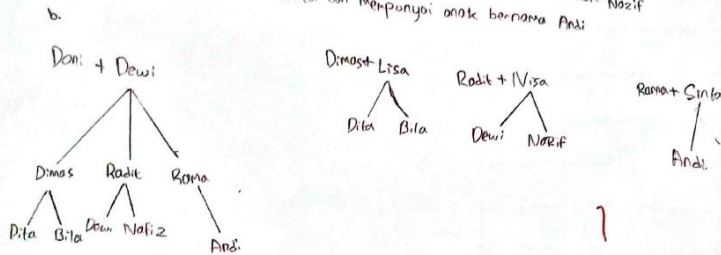 Merpunyai anak bernama Andi
Nazif
b.
Doni + Dewi
Dimas Radit Rama
Dita Bila Dewi Nafiz
Andi
Dimas + Lisa
Dita Bila
Radit + Nisa
Dewi Nazif
Rama + Sinta
Andi
1